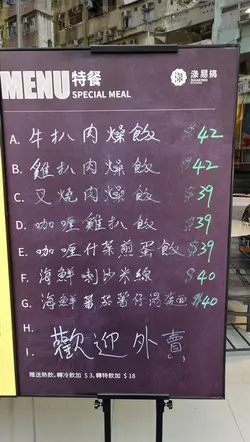 MENU 特餐
SPECIAL MEAL
淥易搞
A. 牛扒肉燥飯 $42
B. 雞扒肉燥飯 $42
C. 叉燒肉燥飯 $39
D. 咖喱雞扒飯 $39
E. 咖喱什菜煎蛋飯 $39
F. 海鮮喇沙米線 $40
G. 海鮮蕃茄薯仔湯麵 $40
H.
I. 歡迎外賣
隨送熱飲, 轉冷飲加 $3, 轉特飲加 $18